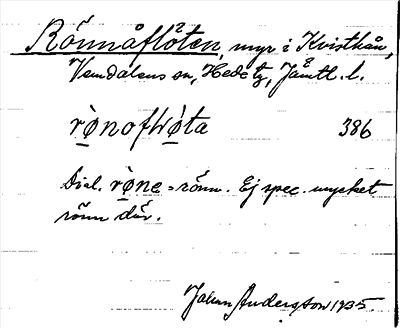 Rönnåflöten, myr i Kvisthån,
Vemdalens sn, Hede tg, Jämtl. l.
rò̱nofWò̱ta 386
Dial. rò̱ne = rönn. Ej spec. mycket
rönn där.
Johan Andersson 1935.